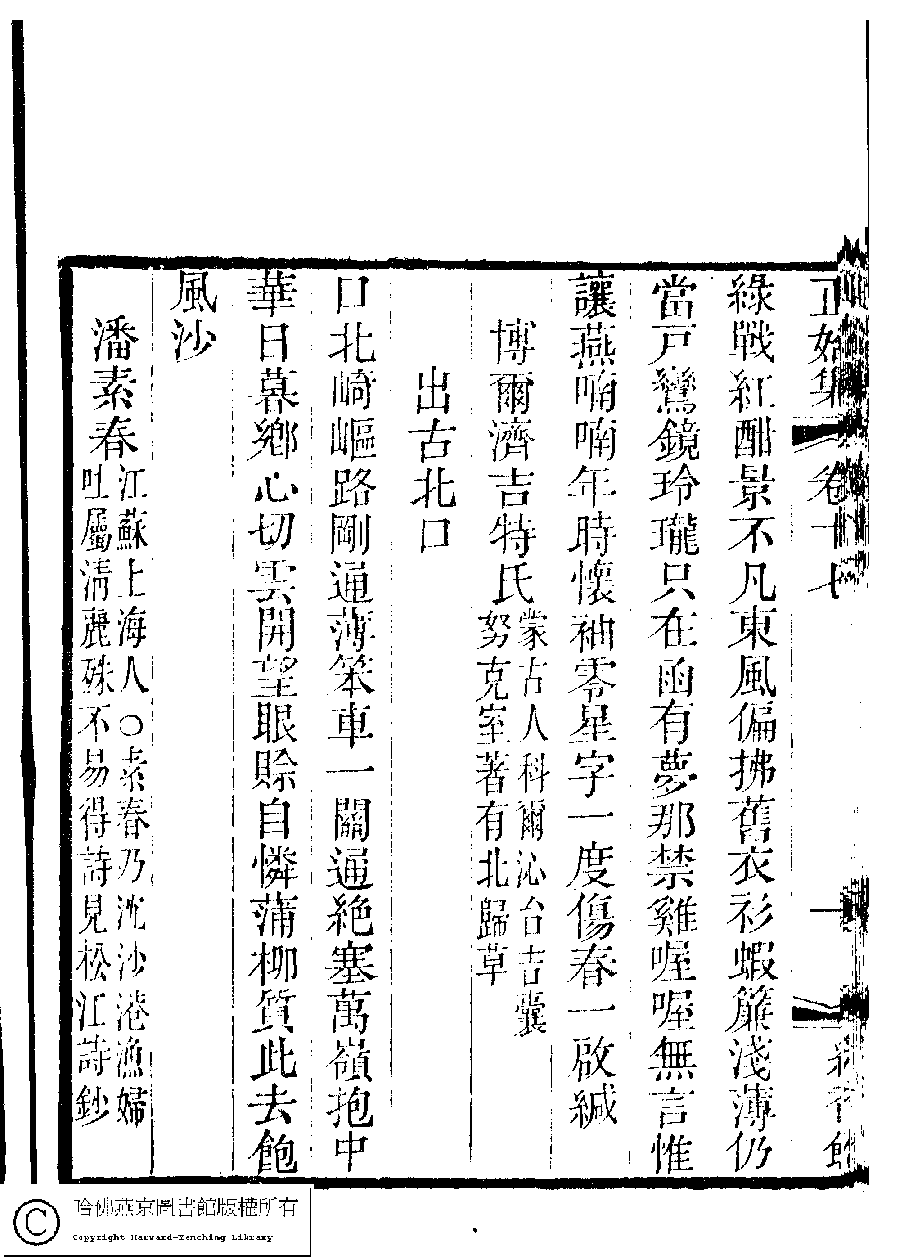 正始集 卷十七 一 紅香館
綠戰紅酣景不凡東風偏拂舊衣衫蝦簾淺薄仍
當戸鸞鏡玲瓏只在函有夢那禁雞喔喔無言惟
讓燕喃喃年時懷袖零星字一度傷春一啟緘
博爾濟吉特氏蒙古人科爾沁台吉囊
努克室著有北歸草
出古北口
口北崎嶇路剛通薄笨車一關逼絶塞萬嶺抱中
華日暮鄉心切雲開望眼賒自憐蒲柳質此去飽
風沙
潘素春江蘇上海人○素春乃沈沙港漁婦
吐屬清麗殊不易得詩見松江詩鈔
哈佛燕京圖書館版權所有
Copyright Harvard-Yenching Library